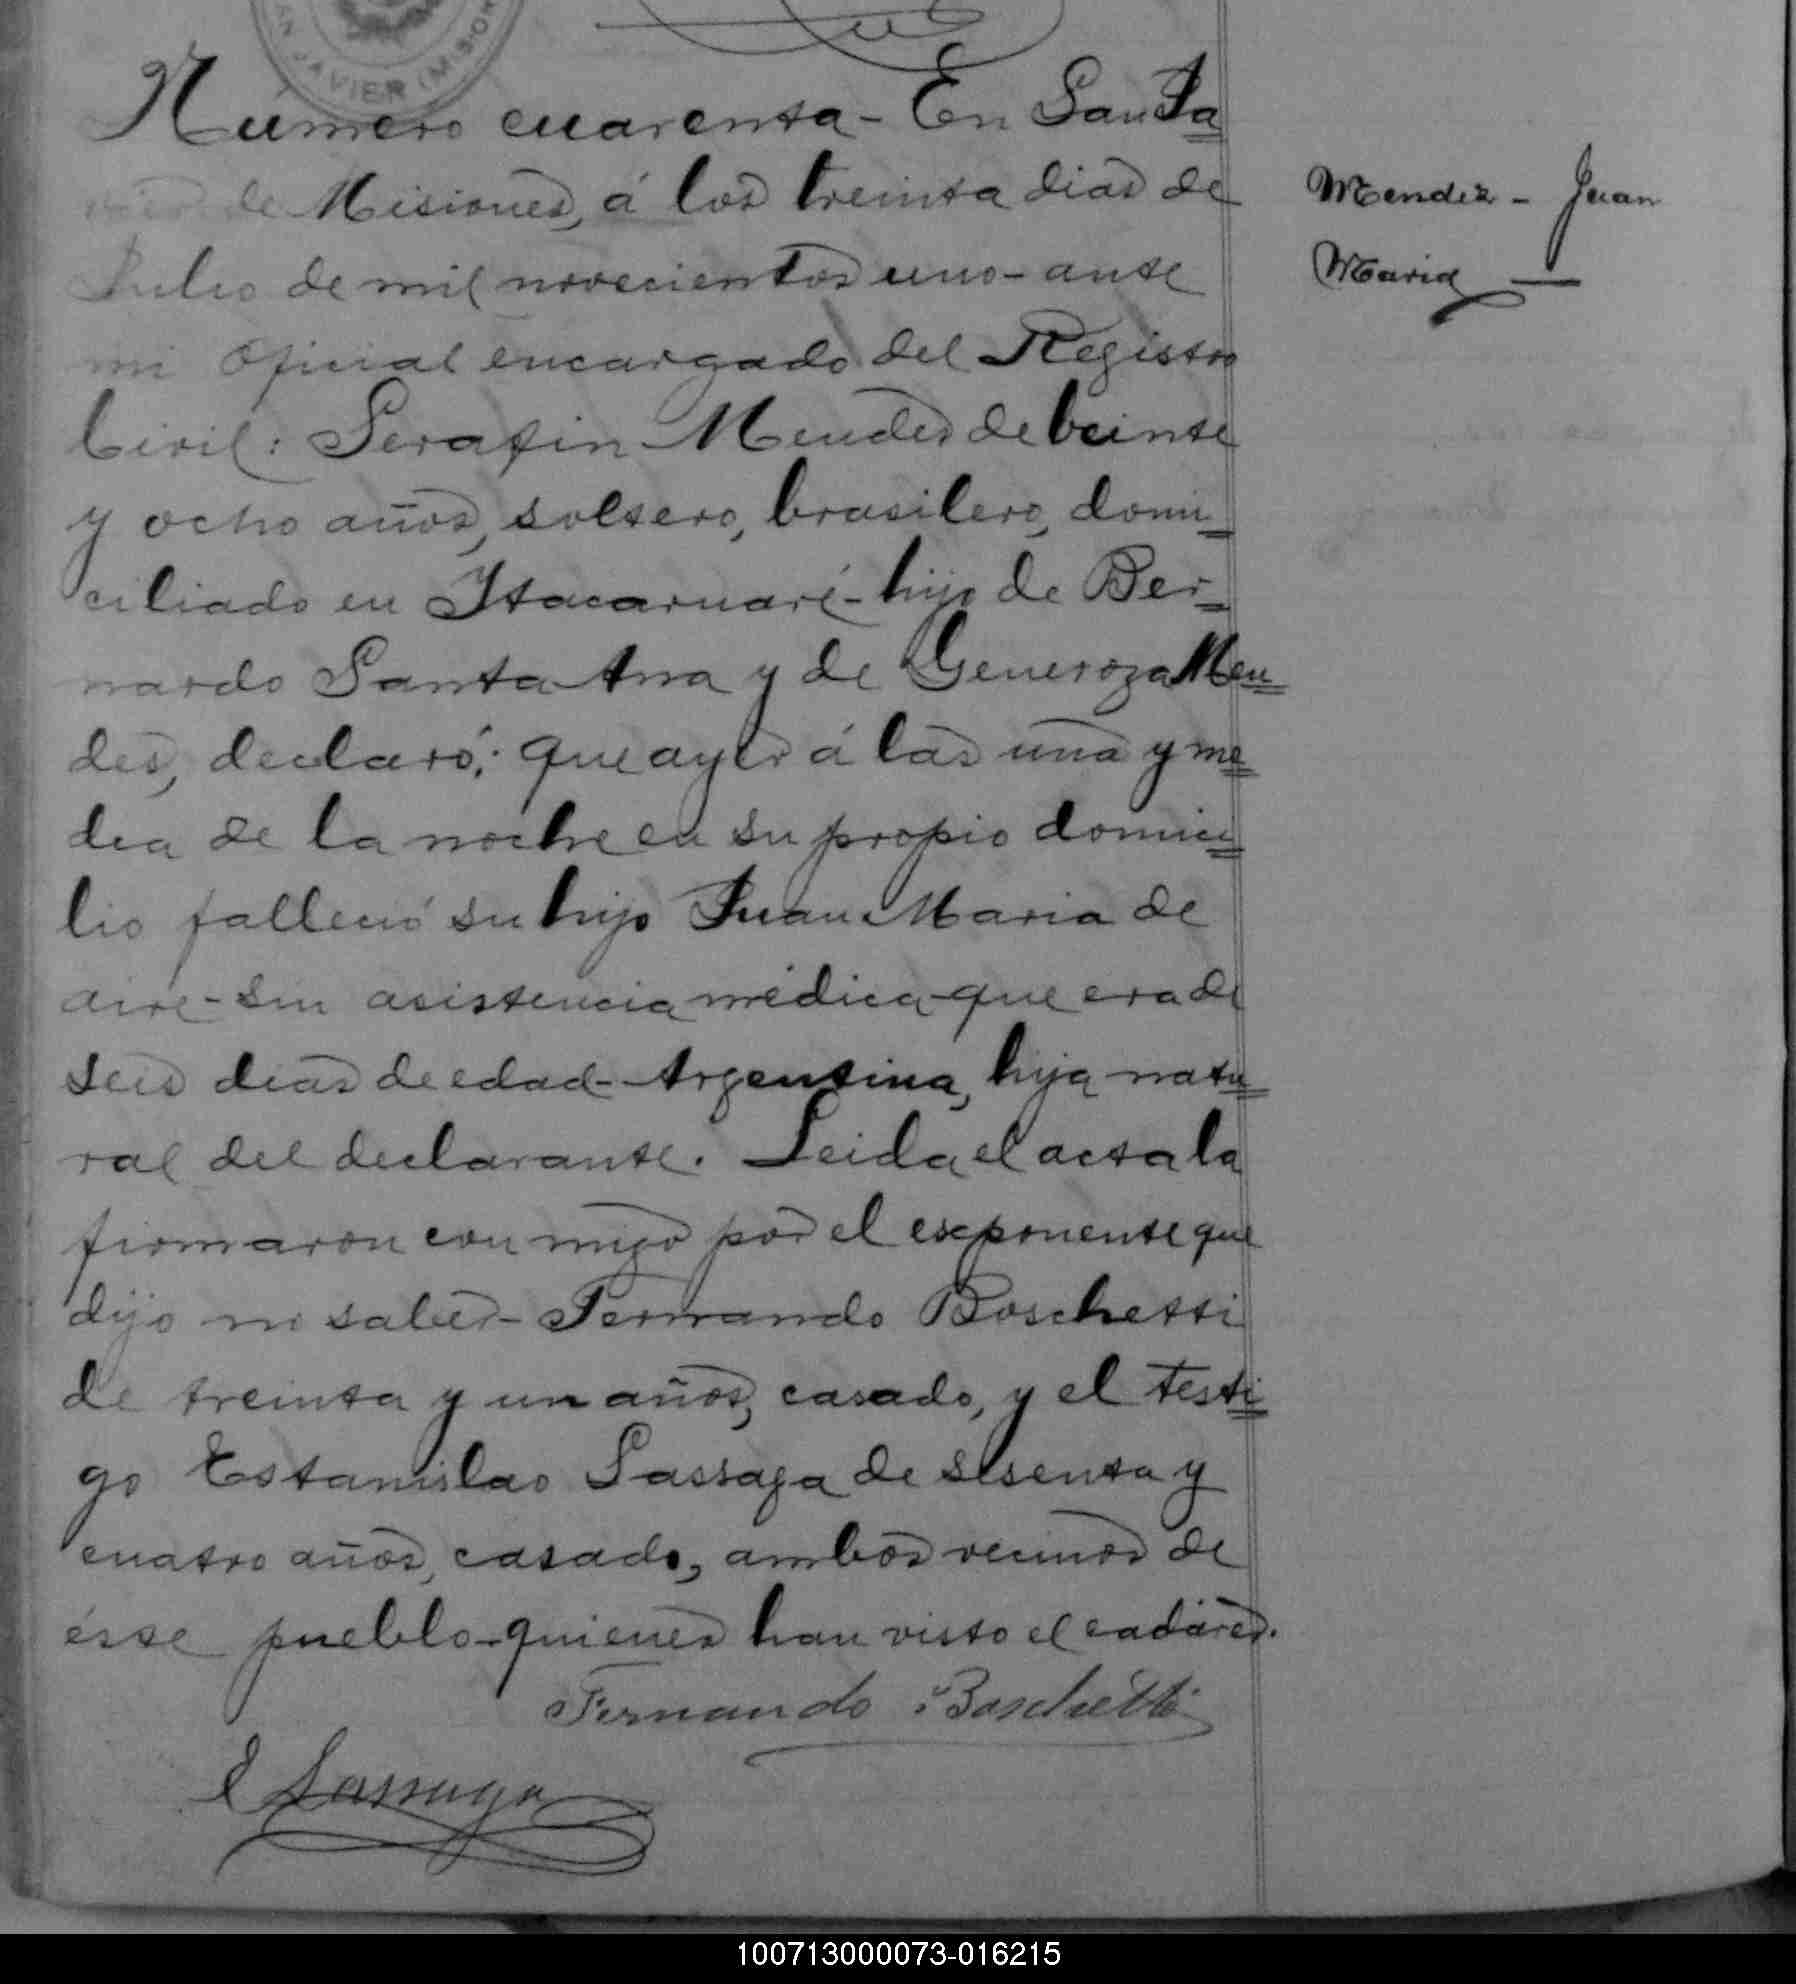 SAN JAVIER (MISIONES
Número cuarenta - En San Ja
vier de Misiones, á los treinta dias de
Julio de mil novecientos uno - ante
mi Oficial encargado del Registro
Civil: Serafin Mendes de beinte
y ocho años, soltero, brasilero, domi
ciliado en Itacaruaré - hijo de Ber
nardo Santa Ana y de Generoza Men
des, declaró; que ayer á las una y me
dia de la noche en su propio domici
lio falleció su hijo Juan Maria de
aire - sin asistencia médica - que era de
seis dias de edad - Argentina, hija natu
ral del declarante. Leida el acta la
firmaron con migo por el exponente que
dijo no saber - Fernando Boschetti
de treinta y un años, casado, y el testi
go Estanislao Lassaga de sesenta y
cuatro años, casado, ambos vecinos de
ésse pueblo - quienes han visto el cadáver.
Fernando Boschetti
E Lassaga
Mendez - Juan
Maria —
100713000073-016215